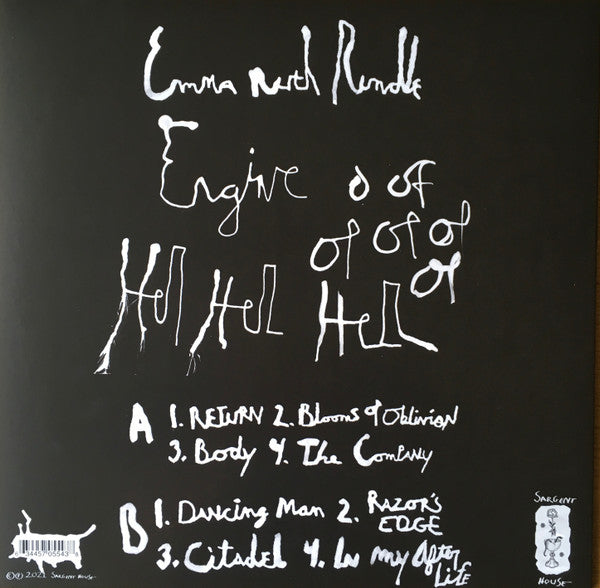 Emma Ruth Rundle
Engine o of
of of of
of
Hel Hel Hell
A 1. RETURN 2. Blooms of Oblivion
3. Body 4. The Company
B 1. Dancing Man 2. RAZOR'S
EDGE
3. Citadel 4. In my After
Life
SARGENT
HOUSE
©℗ 2021 SARGENT HOUSE